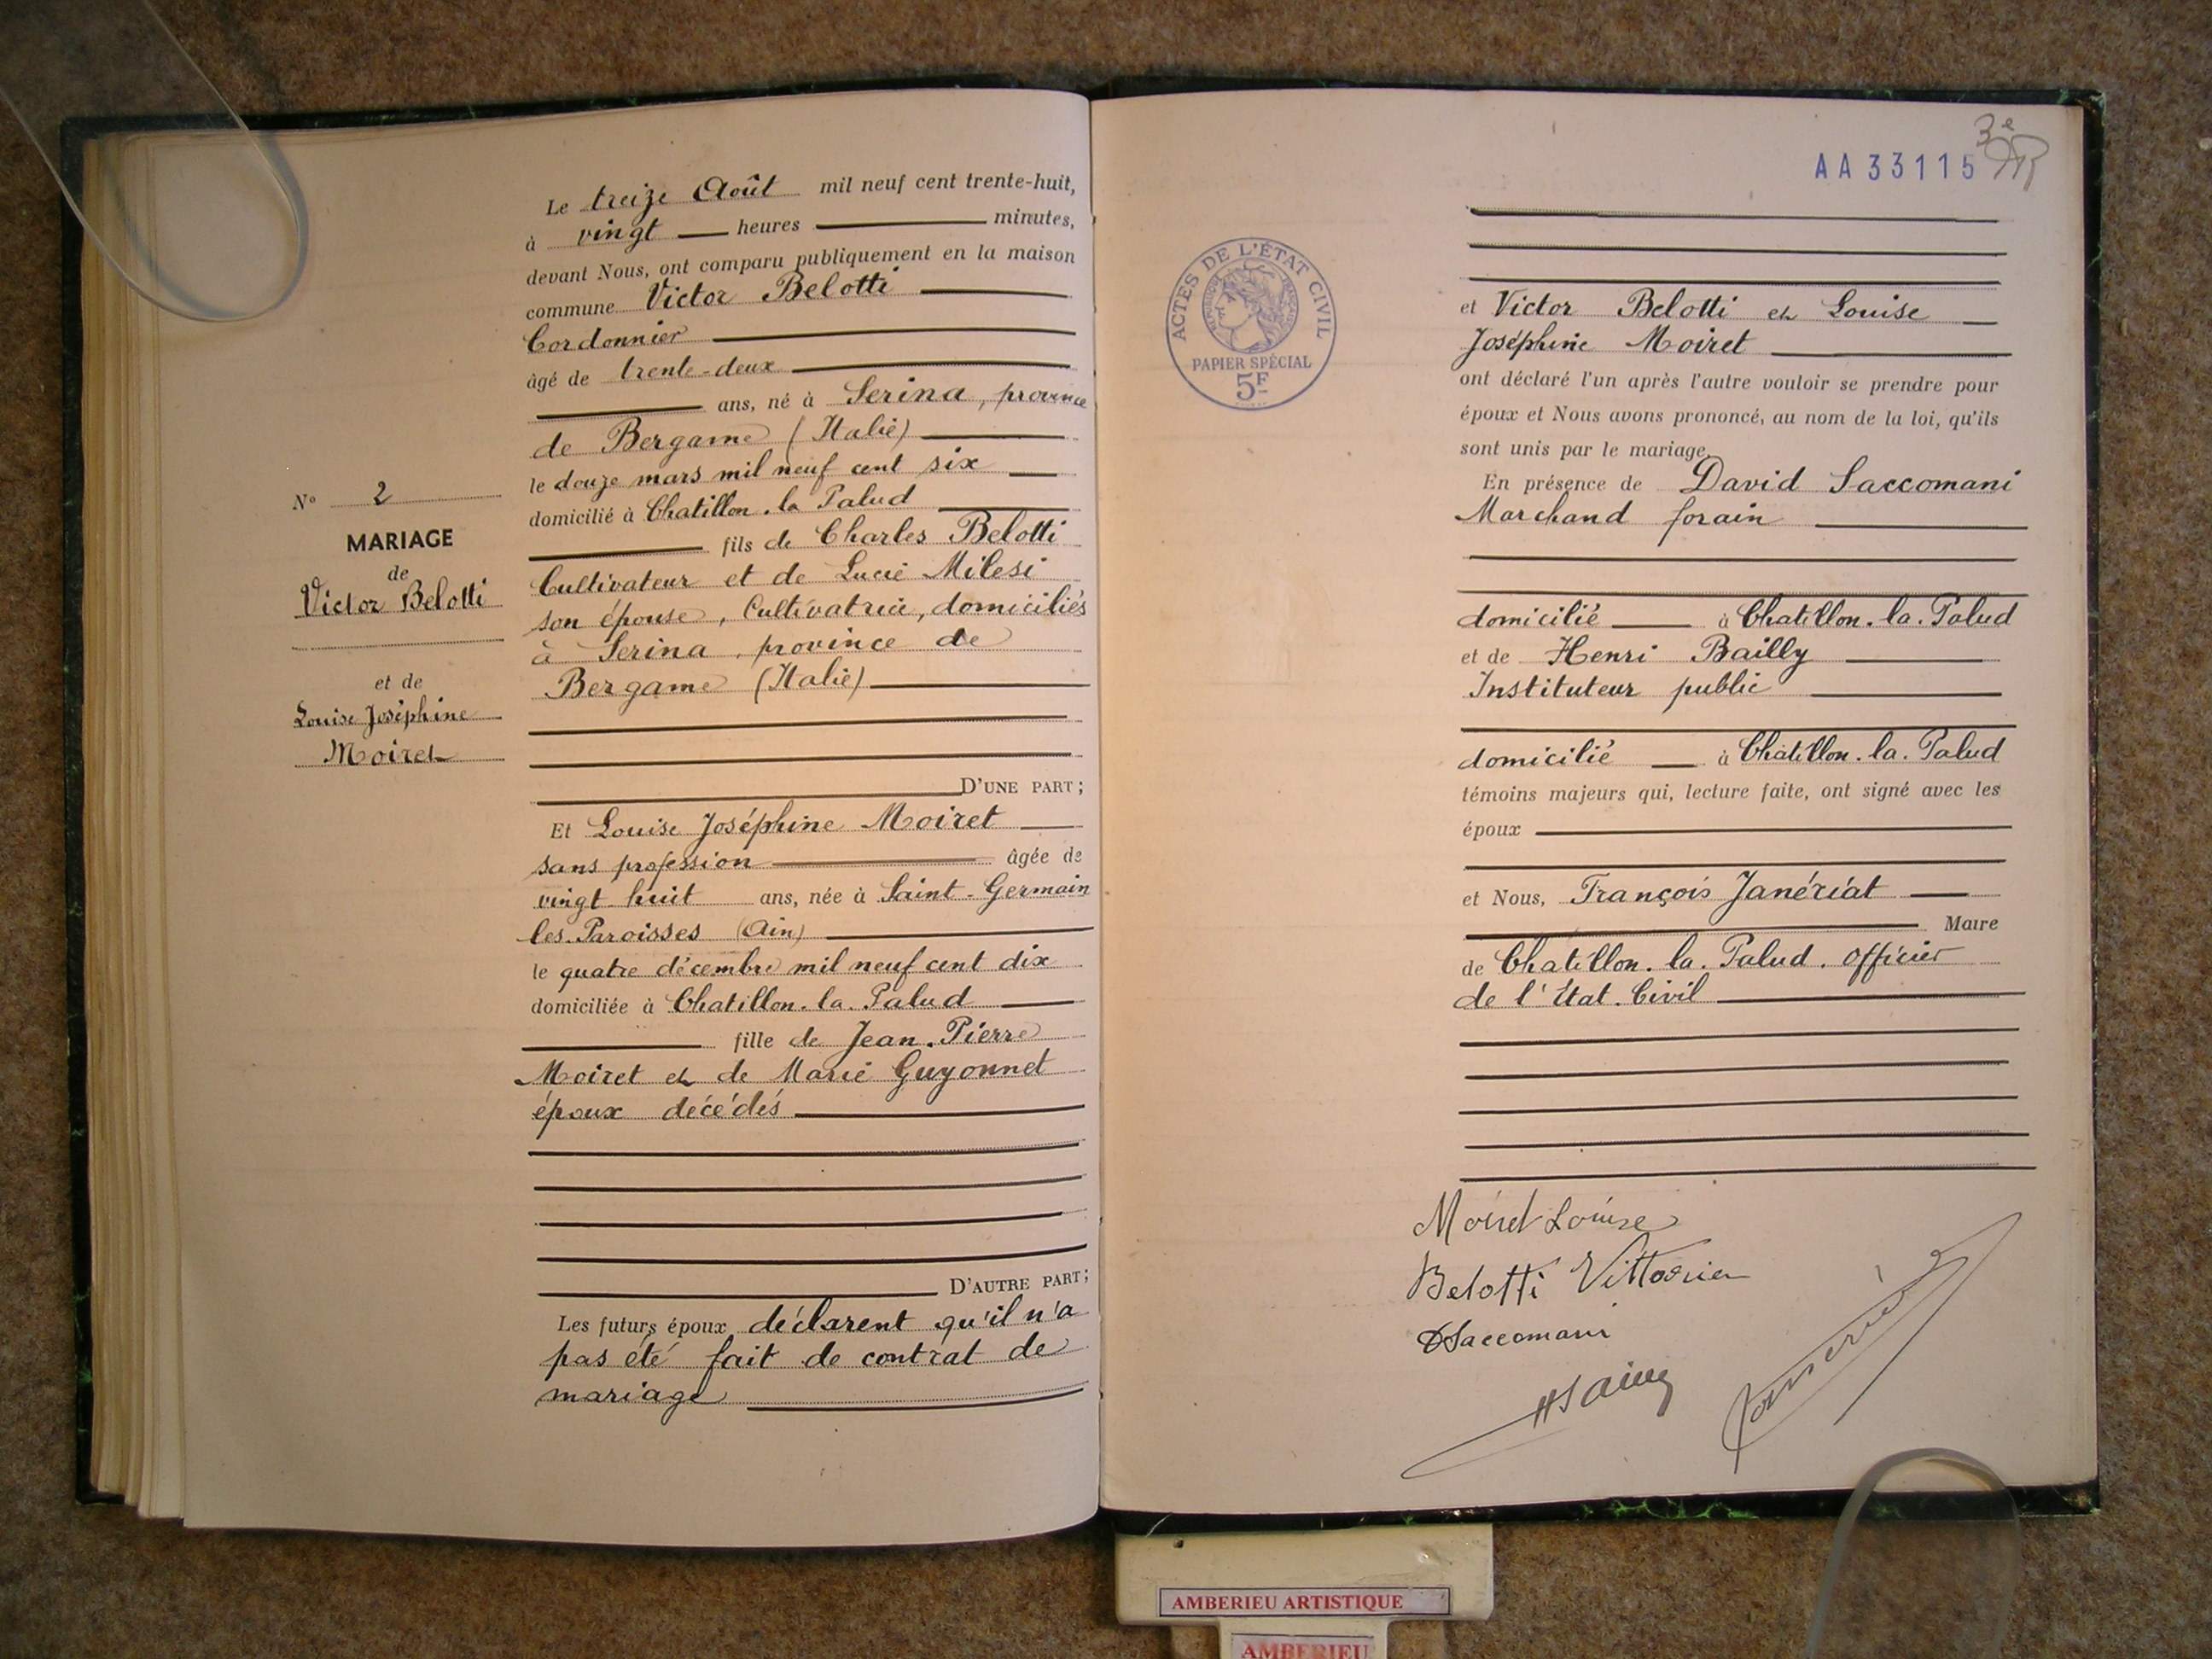 Le treize Août mil neuf cent trente-huit,
à vingt heures minutes,
devant Nous, ont comparu publiquement en la maison
commune Victor Belotti
Cordonnier
âgé de trente-deux
ans, né à Serina, province
de Bergame (Italie)
le douze mars mil neuf cent six
domicilié à Chatillon.la Palud
fils de Charles Belotti
Cultivateur et de Lucie Milesi
son épouse, Cultivatrice, domiciliés
à Serina, province de
Bergame (Italie)
D'UNE PART;
Et Louise Joséphine Moiret
sans profession âgée de
vingt huit ans, née à Saint-Germain
les.Paroisses (Ain)
le quatre décembre mil neuf cent dix
domiciliée à Chatillon.la.Palud
fille de Jean.Pierre
Moiret et de Marie Guyonnet
époux décédés
D'AUTRE PART;
Les futurs époux déclarent qu'il n'a
pas été fait de contrat de
mariage
N° 2
MARIAGE
de
Victor Belotti
et de
Louise Joséphine
Moiret
3e
AA33115
ACTES DE L'ÉTAT CIVIL
RÉPUBLIQUE FRANÇAISE
PAPIER SPÉCIAL
5F
et Victor Belotti et Louise
Joséphine Moiret
ont déclaré l'un après l'autre vouloir se prendre pour
époux et Nous avons prononcé, au nom de la loi, qu'ils
sont unis par le mariage.
En présence de David Saccomani
Marchand forain
domicilié à Chatillon.la.Palud
et de Henri Bailly
Instituteur public
domicilié à Chatillon.la.Palud
témoins majeurs qui, lecture faite, ont signé avec les
époux
et Nous, François Janériat
Maire
de Chatillon.la.Palud.Officier
de l'État.Civil
Moiret Louise
Belotti Vittorio
DSaccomani
AMBERIEU ARTISTIQUE
AMBERIEU